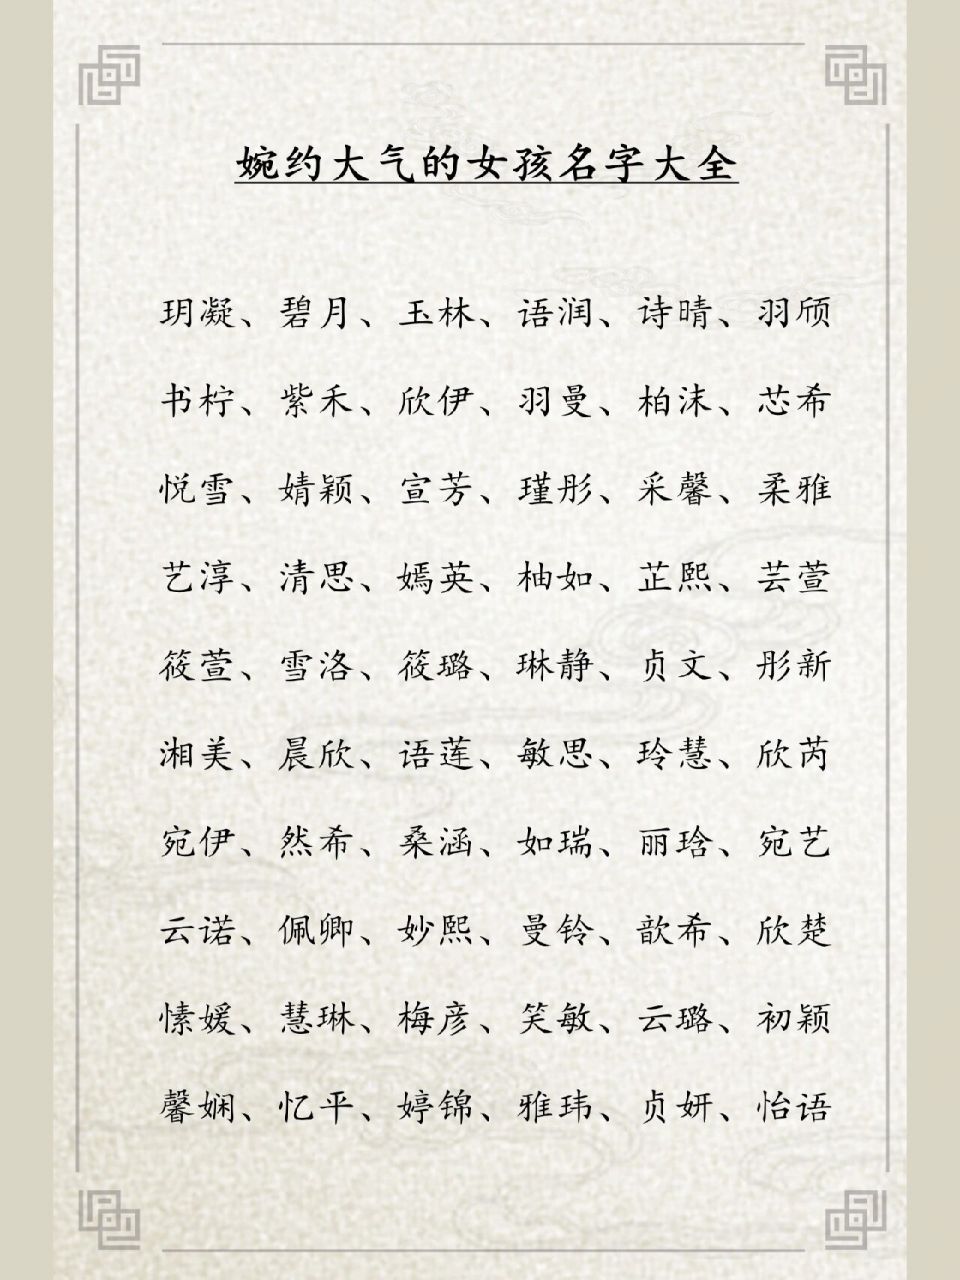 婉约大气的女孩名字大全
玥凝、碧月、玉林、语润、诗晴、羽颀
书柠、紫禾、欣伊、羽曼、柏沫、芯希
悦雪、婧颖、宣芳、瑾彤、采馨、柔雅
艺淳、清思、嫣英、柚如、芷熙、芸萱
筱萱、雪洛、筱璐、琳静、贞文、彤新
湘美、晨欣、语莲、敏思、玲慧、欣芮
宛伊、然希、桑涵、如瑞、丽琀、宛艺
云诺、佩卿、妙熙、曼铃、歆希、欣楚
愫媛、慧琳、梅彦、笑敏、云璐、初颖
馨娴、忆平、婷锦、雅玮、贞妍、怡语